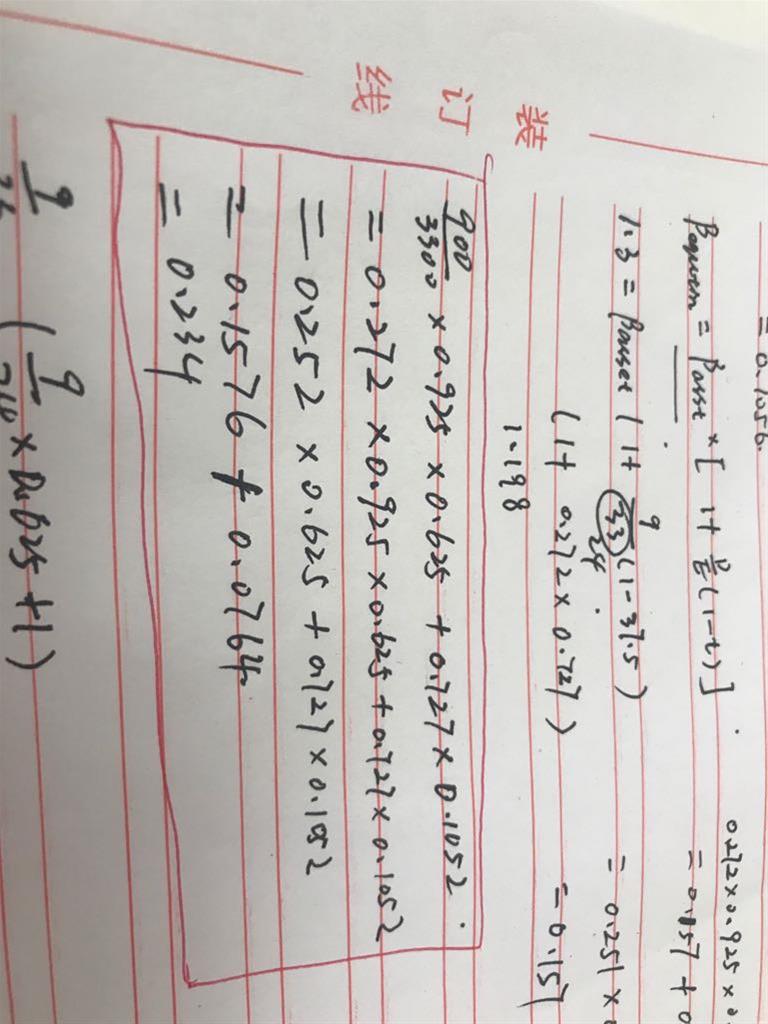 = 0.1056.
βequ = βasse × [ 1 + D/E (1-t) ]
1.3 = βasset ( 1 + 9/24 (1-37.5)
( 1 + 0.272 × 0.727 )
1.198
0.272 × 0.925 ×
= 0.157 + 0
= 0.251 ×
= 0.157
装 订 线
900/3300 × 0.925 × 0.625 + 0.727 × 0.1052.
= 0.272 × 0.925 × 0.625 + 0.727 × 0.1052
= 0.252 × 0.625 + 0.727 × 0.1052
= 0.1576 + 0.0764
= 0.234
9 ( 9 × 0.625 + 1 )